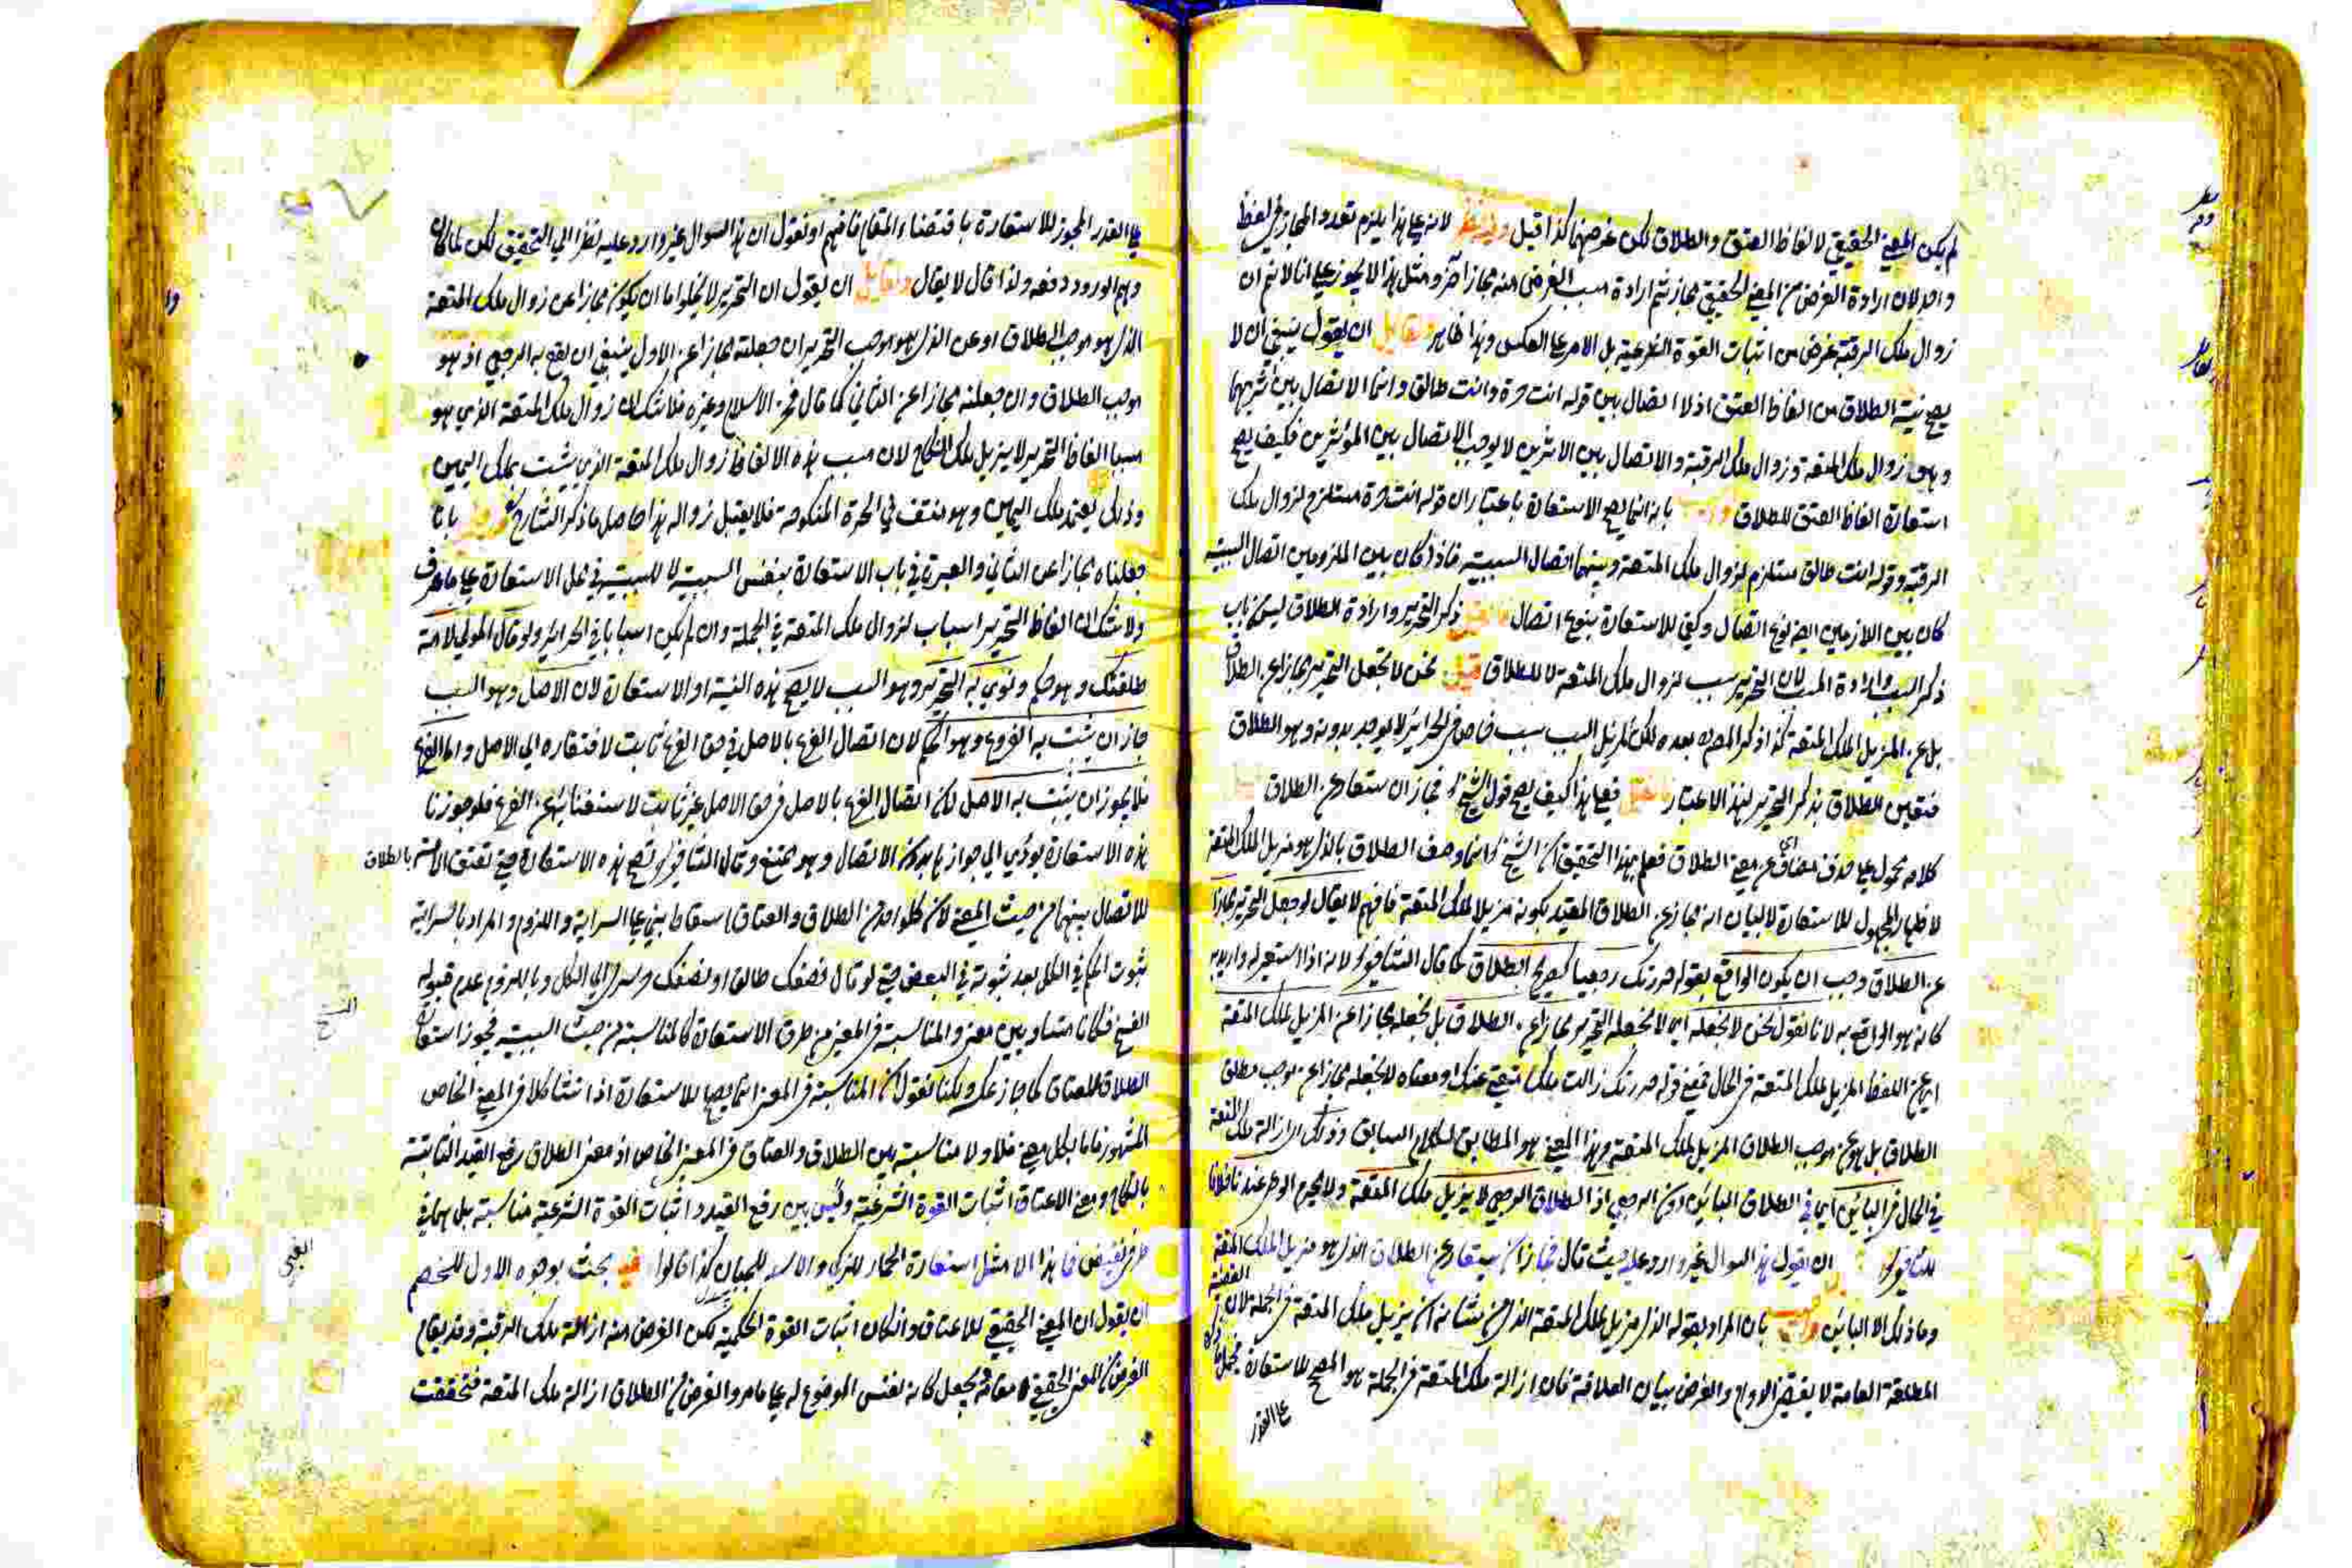 لم يكن المعنى الحقيقي لالفاظ العتق والطلاق لكن غرضهما كذا قيل وفيه نظر لانه على هذا يلزم تعدد المجاز في لفظ
واحد لان ارادة الغرض من المعنى الحقيقي مجاز ثم ارادة سبب الغرض منه مجاز آخر ومثل هذا لا يجوز على انا لا نم ان
زوال ملك الرقبة غرض من اثبات القوة الشرعية بل الامر على العكس وهذا ظاهر ولقايل ان يقول ينبغي ان لا
يصح نية الطلاق من الفاظ العتق اذ لا اتصال بين قوله انت حرة وانت طالق وانما الاتصال بين اثريهما
وهو زوال ملك المتعة وزوال ملك الرقبة والاتصال بين الاثرين لا يوجب الاتصال بين المؤثرين فكيف يصح
استعارة الفاظ العتق للطلاق واجيب بانه انما يصح الاستعارة باعتبار ان قوله انت حرة مستلزم لزوال ملك
الرقبة وقوله انت طالق مستلزم لزوال ملك المتعة وبينهما اتصال السببية فاذا كان بين الملزومين اتصال السببية
كان بين اللازمين ايضا نوع اتصال وكفى للاستعارة بنوع اتصال فان قيل ذكر التحرير وارادة الطلاق ليس من باب
ذكر السبب وارادة المسبب لان التحرير سبب لزوال ملك المتعة لا للطلاق قيل نحن لا نجعل التحرير مجازا عن الطلاق
بل عن المزيل لملك المتعة كذا ذكر المص بعده لكن لمزيل السبب سبب خاص في الحرائر لا يوجد بدونه وهو الطلاق
فتعين الطلاق بذكر التحرير لهذا الاعتبار فان قيل فعلى هذا كيف يصح قول الشيخ فجاز ان يستعار عن الطلاق قيل
كلامه محمول على حذف مضاف اي عن معنى الطلاق فعلم بهذا التحقيق ان الشيخ انما وصف الطلاق بالذي هو مزيل لملك المتعة
لا لبيان انه مجاز عن الطلاق المقيد بكونه مزيلا لملك المتعة فافهم لا يقال لو جعل التحرير مجازا
عن الطلاق وجب ان يكون الواقع بقوله حررتك رجعيا كصريح الطلاق كما قال الشافعي لانه اذا استعير له واريد به
كانه هو الواقع به لانا نقول نحن لا نجعله اي لا نجعل التحرير مجازا عن الطلاق بل نجعله مجازا عن المزيل لملك المتعة
اي عن اللفظ المزيل لملك المتعة في الحال فمعنى قوله حررتك زالت ملك متعتي عنك او معناه لا نجعله مجازا عن موجب مطلق
الطلاق بل هو عن موجب الطلاق المزيل لملك المتعة وهذا المعنى هو المطابق لسابق وذلك اي ازالة ملك المتعة
في الحال في البائن اي في الطلاق البائن دون الرجعي اذ الطلاق الرجعي لا يزيل ملك المتعة ولا يحرم الوطء عندنا خلافا
للشافعي ان يقول هذا السوال غير وارد عليه حيث قال فجاز ان يستعار عن الطلاق الذي هو مزيل لملك المتعة
وما ذلك الا البائن واجيب بان المراد بقوله الذي مزيل لملك المتعة الذي من شانه ان يزيل ملك المتعة في الجملة لان القضية
المطلقة العامة لا يقتضي الدوام والغرض بيان العلاقة فان ازالة ملك المتعة في الجملة هو المصحح للاستعارة
على القدر
على القدر المجوز للاستعارة باقتضاء المقام فافهم او نقول ان هذا السوال غير وارد عليه نظرا الى التحقيق لكن لما كان
وهم الورود دفعه ولذا قال لا يقال ولقايل ان يقول ان التحرير لا يخلو اما ان يكون مجازا عن زوال ملك المتعة
الذي هو موجب الطلاق او عن الذي هو موجب التحرير ان جعلته مجازا عن الاول ينبغي ان يقع به الرجعي اذ هو
موجب الطلاق وان جعلته مجازا عن الثاني كما قال فخر الاسلام وغيره فلا شك ان زوال ملك المتعة الذي هو
مسبب الفاظ التحرير لا يزيل ملك النكاح لان مسبب هذه الالفاظ زوال ملك المتعة الذي يثبت بملك اليمين
وذلك يعتمد ملك اليمين وهو منتف في الحرة المنكوحة فلا يقبل زواله هذا حاصل ما ذكر الشارح بانا
جعلناه مجازا عن الثاني والعبرة في باب الاستعارة بنفس السببية لا للسببية في محل الاستعارة على ما عرف
ولا شك ان الفاظ التحرير اسباب لزوال ملك المتعة في الجملة وان لم يكن اسبابا في الحرائر ولو قال المولى لامته
طلقتك وهو حكم ونوى به التحرير وهو السبب لا يصح هذه النية او الاستعارة لان الاصل وهو السبب
جاز ان يثبت به الفرع وهو الحكم لان اتصال الفرع بالاصل في حق الفرع ثابت لافتقاره الى الاصل واما الفرع
فلا يجوز ان يثبت به الاصل لان اتصال الفرع بالاصل في حق الاصل غير ثابت لاستغنائه عن الفرع فلو جوزنا
هذه الاستعارة يودي الى جوازها بدون الاتصال وهو ممتنع وقال الشافعي تصح هذه الاستعارة حتى تعتق الامة بالطلاق
للاتصال بينهما من حيث المعنى لان كل واحد من الطلاق والعتاق اسقاط بني على السراية واللزوم والمراد بالسراية
ثبوت الحكم في الكل بعد ثبوته في البعض حتى لو قال نصفك طالق او نصفك حر سرى الى الكل وباللزوم عدم قبوله
الفسخ فكانا متشابهين معنى والمناسبة في المعنى من طرق الاستعارة كالمناسبة من حيث السببية فيجوز استعارة
الطلاق للعتاق كما جاز عكسه ولكنا نقول ان المناسبة في المعنى انما يصلح للاستعارة اذا تشاكلا في المعنى الخاص
المشهور فاما بكل معنى فلا ولا مناسبة بين الطلاق والعتاق في المعنى الخاص اذ معنى الطلاق رفع القيد الثابتة
بالنكاح ومعنى الاعتاق اثبات القوة الشرعية وليس بين رفع القيد واثبات القوة الشرعية مناسبة بل هما في
طرفي نقيض فما هذا الا مثل استعارة الحمار للذكي والاسد للجبان كذا قالوا فيه بحث بوجوه الاول للخصم
ان يقول ان المعنى الحقيقي للاعتاق وان كان اثبات القوة الحكمية لكن الغرض منه ازالة ملك الرقبة وقد يقام
الغرض من المعنى الحقيقي مقامه فيجعل كانه نفس الموضوع له على ما مر والغرض من الطلاق ازالة ملك المتعة فتحققت